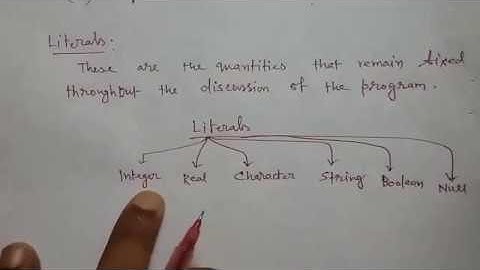 Literals:
These are the quantities that remain fixed
throughout the discussion of the program.
Literals
Integer Real Character String Boolean Null